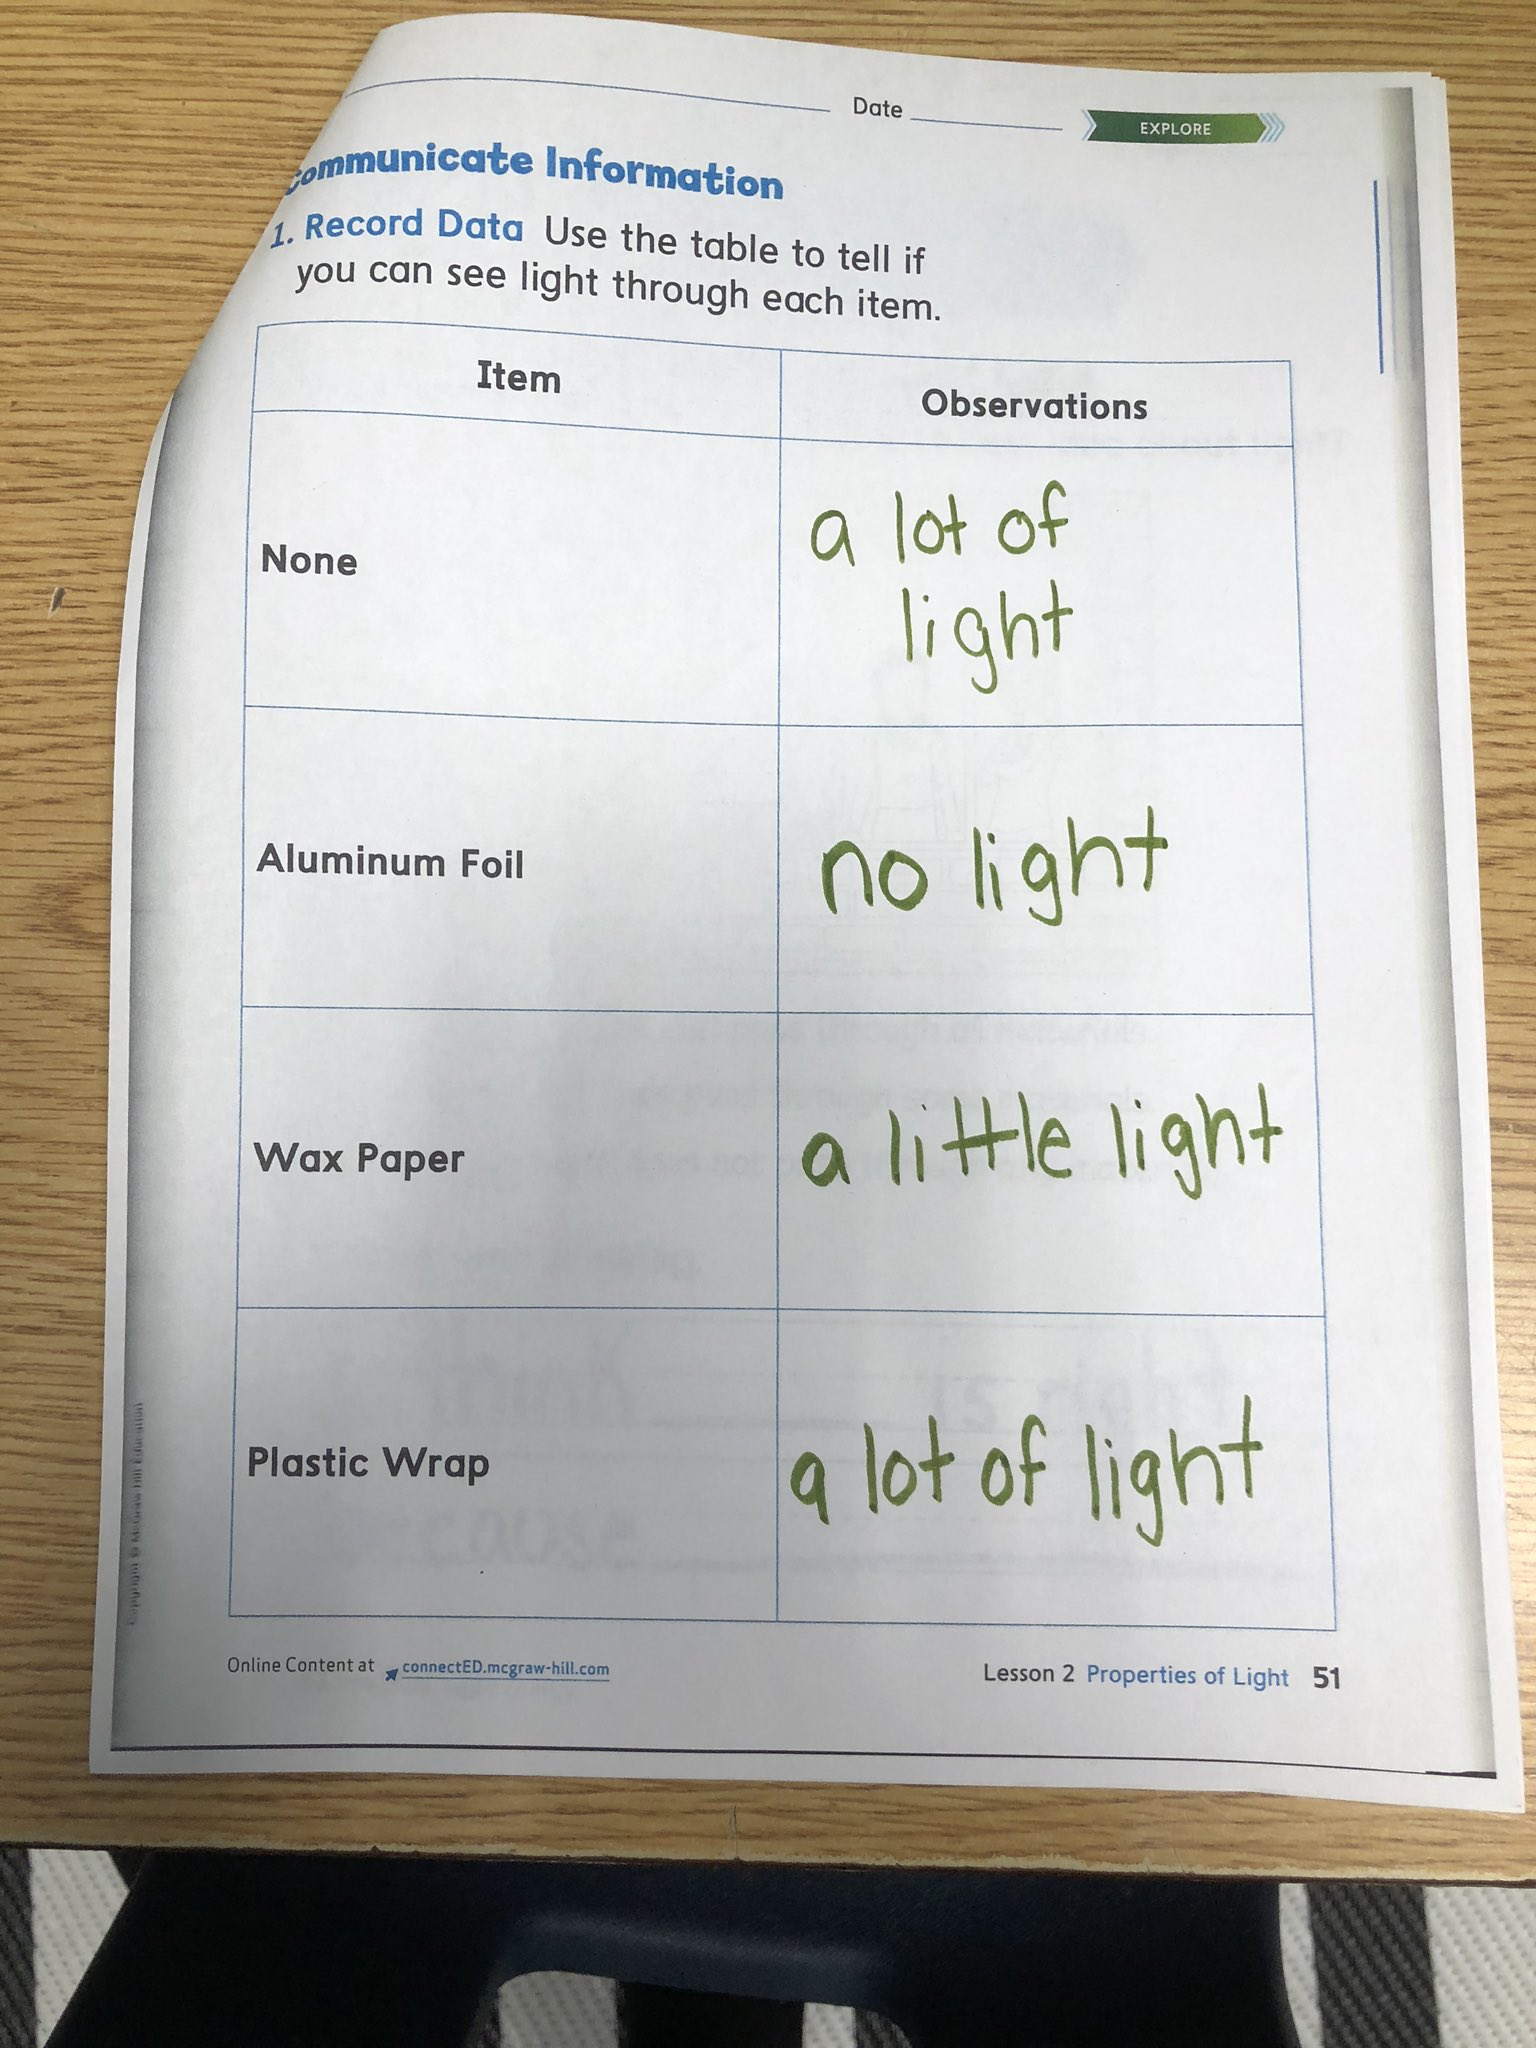 Date
EXPLORE
Communicate Information
1. Record Data Use the table to tell if
you can see light through each item.
Item
Observations
None
a lot of
light
Aluminum Foil
no light
Wax Paper
a little light
Plastic Wrap
a lot of light
Copyright © McGraw-Hill Education
Online Content at connectED.mcgraw-hill.com
Lesson 2 Properties of Light 51